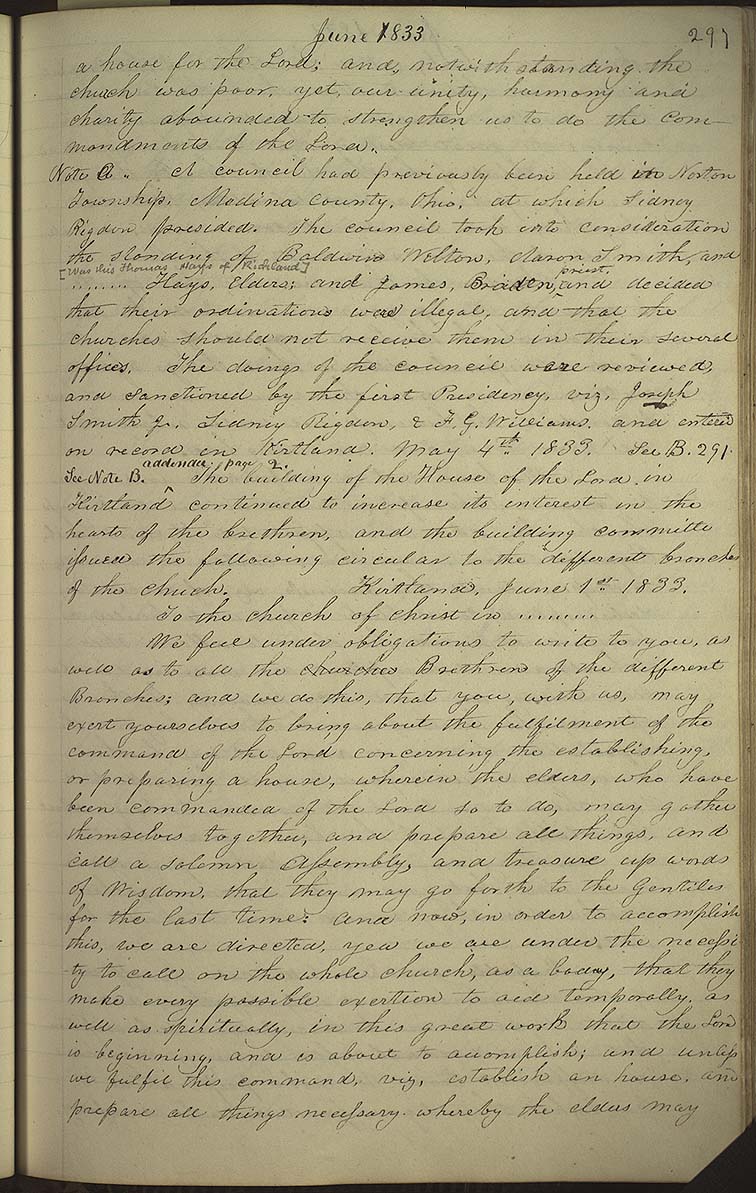 June 1833
297
a house for the Lord; and, notwithstanding the
church was poor, yet, our unity, harmony and
charity abounded to strengthen us to do the com-
mandments of the Lord.
Note A. A council had previously been held in Norton
Township, Medina County, Ohio, at which Sidney
Rigdon presided. The council took into consideration
the standing of Baldwin Welton, Aaron Smith, and
[Was this Thomas Hays of Richland]
priest,
........ Hays, Elders; and James, Braden, and decided
that their ordinations was illegal, and that the
churches should not receive them in their several
offices. The doings of the council were reviewed,
and sanctioned by the first Presidency, viz, Joseph
Smith Jr. Sidney Rigdon, & F. G. Williams. and entered
on record in Kirtland. May 4th 1833. See B. 291.
addenda page 2.
See Note B. The building of the House of the Lord in
Kirtland continued to increase its interest in the
hearts of the brethren, and the building committe
issued the following circular to the different branches
of the church. Kirtland, June 1st 1833.
To the church of Christ in .........
We feel under obligations to write to you, as
well as to all the churches Brethren of the different
Branches; and we do this, that you, with us, may
exert yourselves to bring about the fulfilment of the
command of the Lord concerning the establishing,
or preparing a house, wherein the elders, who have
been commanded of the Lord so to do, may gather
themselves together, and prepare all things, and
call a solemn Assembly, and treasure up words
of Wisdom, that they may go forth to the Gentiles
for the last time: and now, in order to accomplish
this, we are directed, yea we are under the necessi
-ty to call on the whole church, as a body, that they
make every possible exertion to aid temporally, as
well as spiritually, in this great work that the Lord
is beginning, and is about to accomplish; and unless
we fulfil this command, viz, establish an house, and
prepare all things necessary whereby the elders may